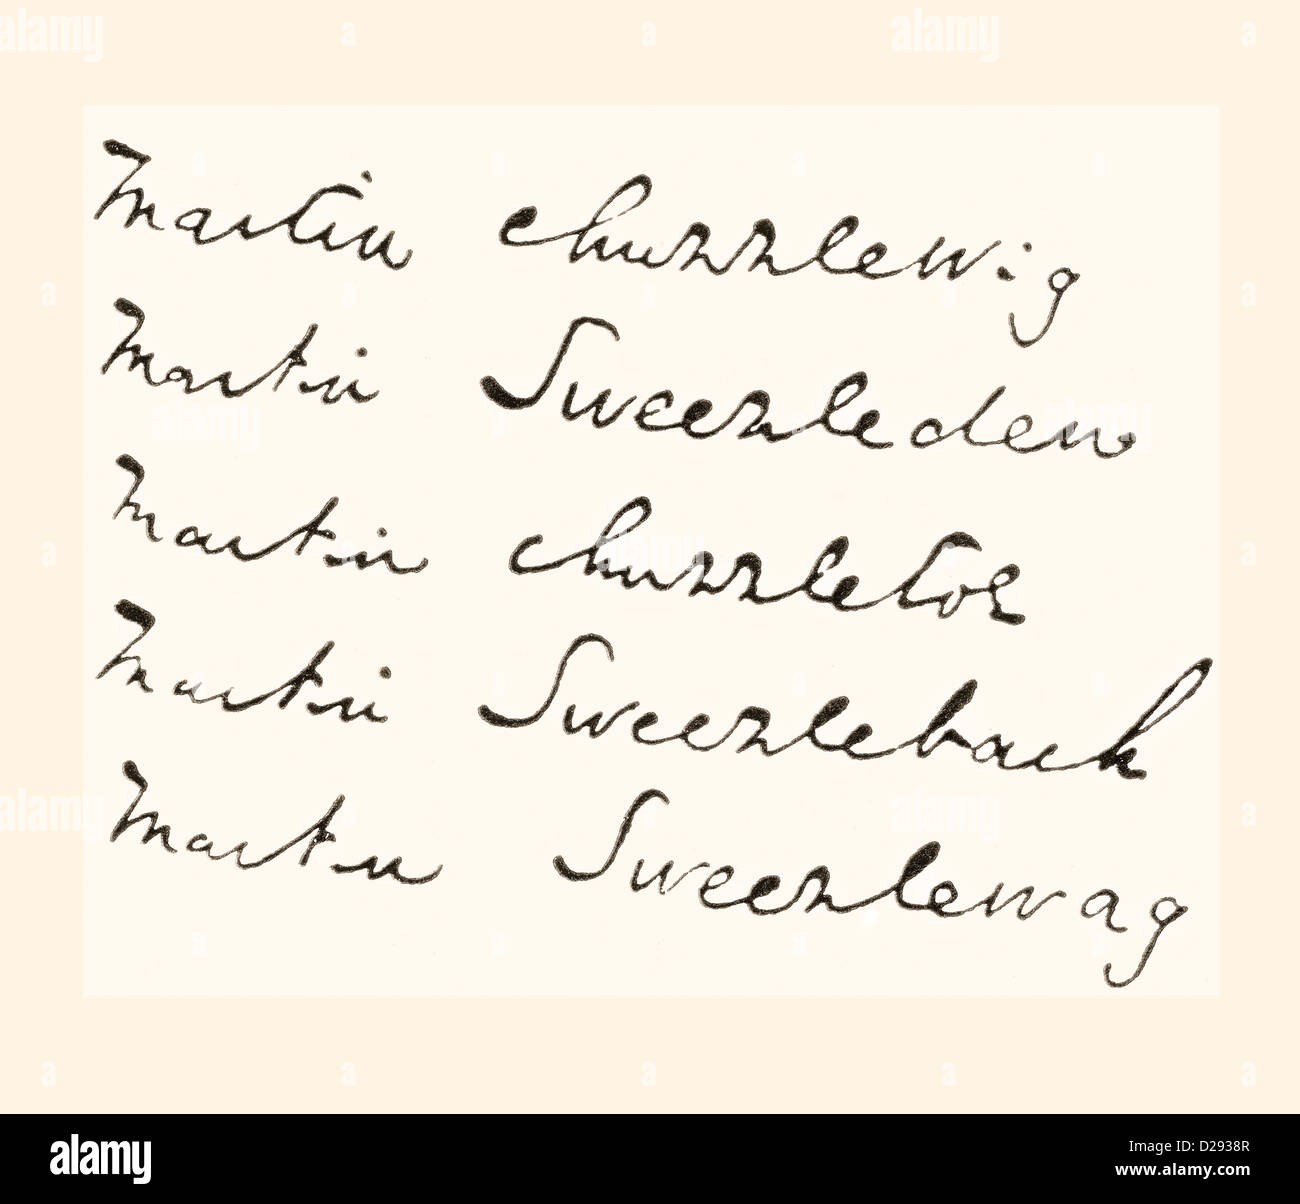 Martin Chuzzlewig
Martin Sweezleden
Martin Chuzzletoe
Martin Sweezleback
Martin Sweezlewag
alamy
Image ID: D2938R
www.alamy.com